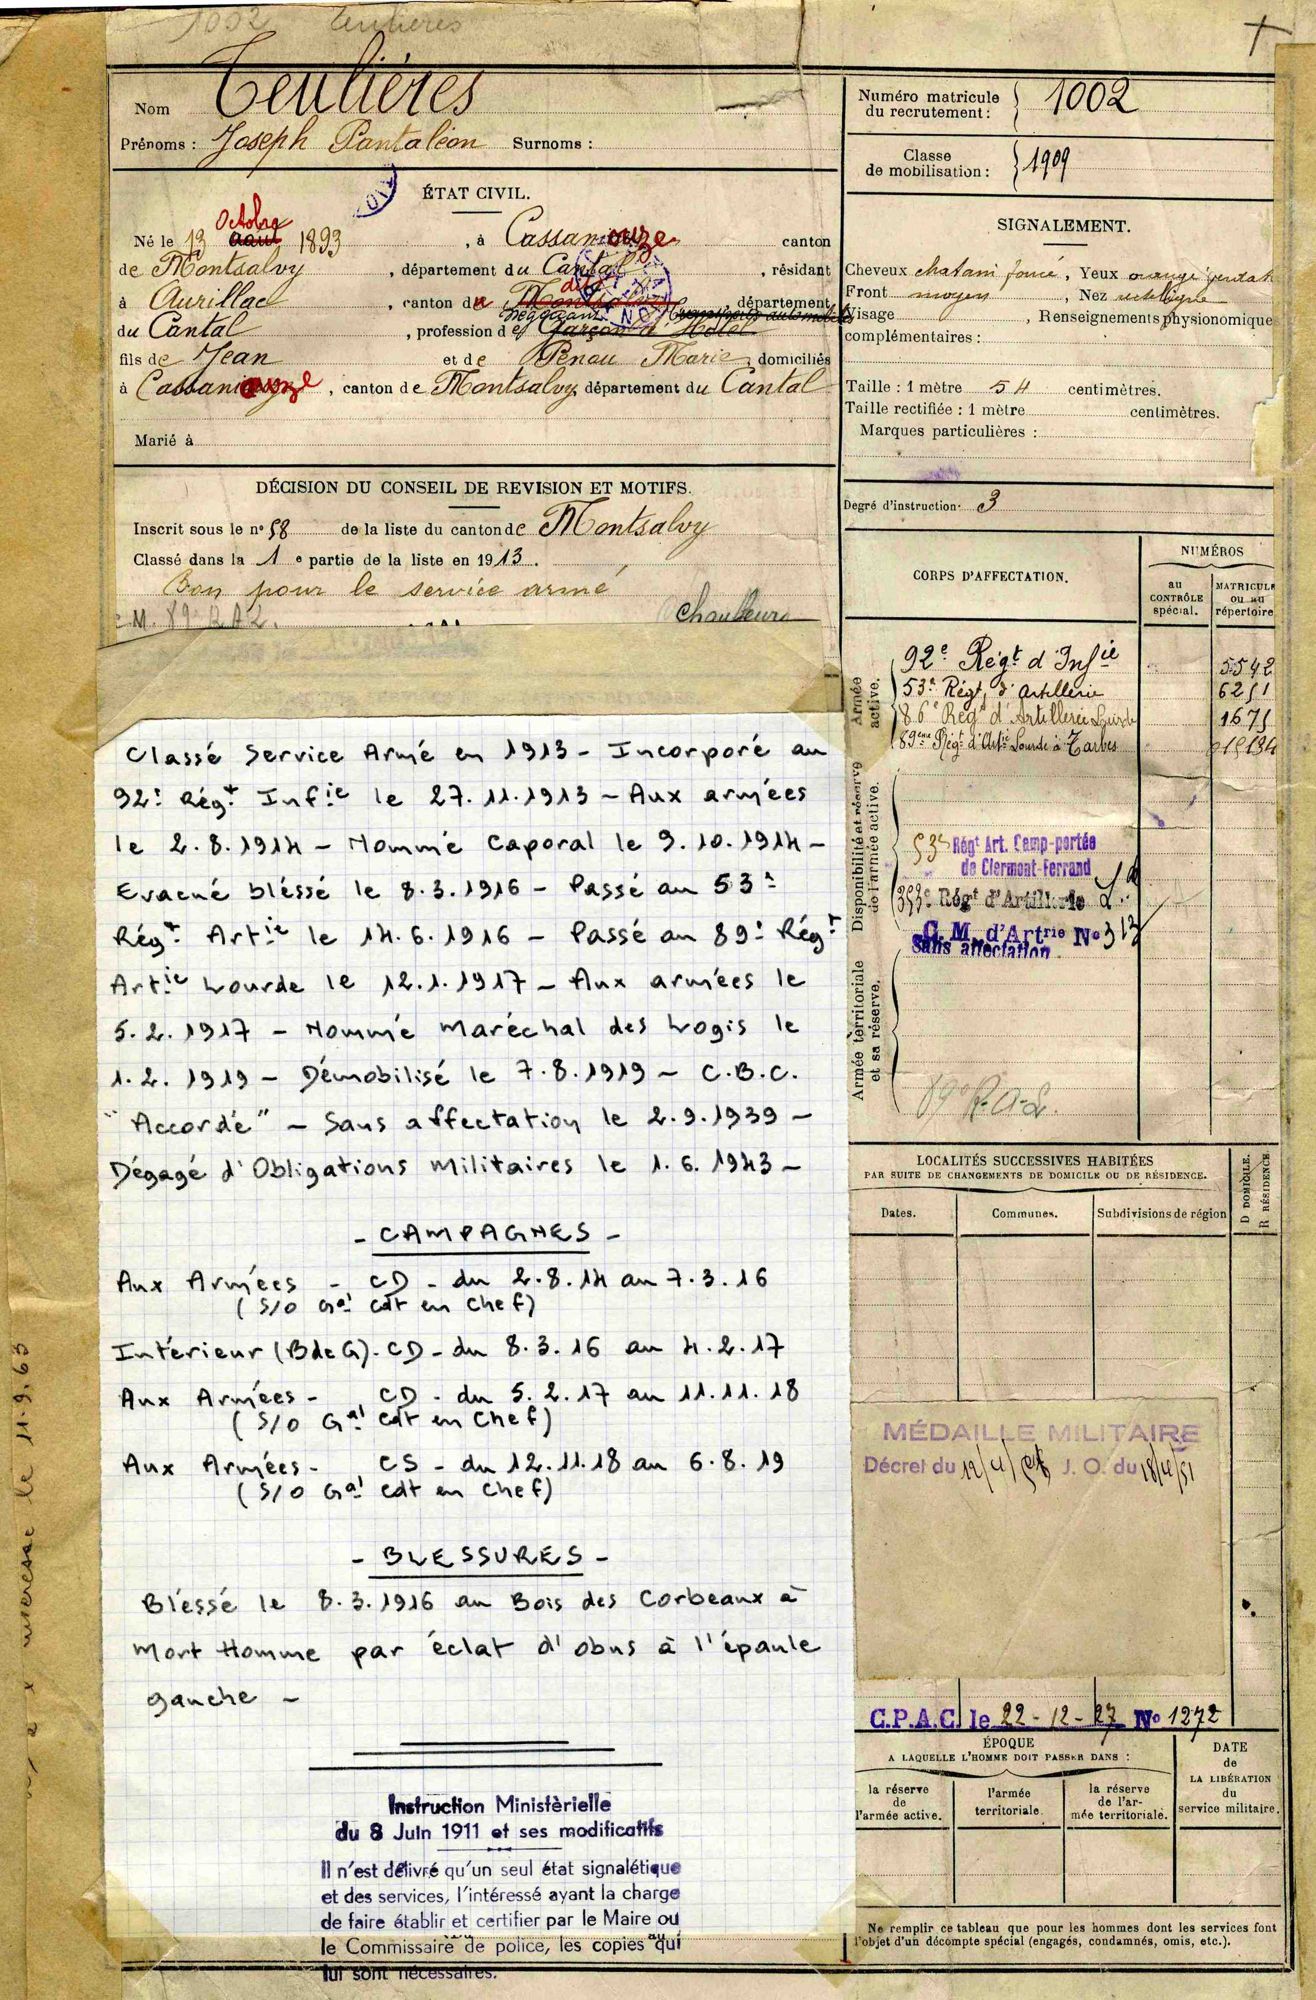 1002 Teulières
Nom Teulières
Prénoms : Joseph Pantaléon Surnoms :
Numéro matricule du recrutement : 1002
Classe de mobilisation : 1909
ÉTAT CIVIL.
Octobre
Né le 13 août 1893, à Cassaniouze canton
de Montsalvy, département du Cantal, résidant
à Aurillac, canton du dit Montsalvy, département
du Cantal, profession de Garçon d'Hôtel
fils de Jean et de Penou Marie domiciliés
à Cassaniouze, canton de Montsalvy département du Cantal
Marié à
SIGNALEMENT.
Cheveux chatain foncé, Yeux orangé
Front moyen, Nez rectiligne
Visage , Renseignements physionomique
complémentaires :
Taille : 1 mètre 54 centimètres.
Taille rectifiée : 1 mètre centimètres.
Marques particulières :
Degré d'instruction : 3
DÉCISION DU CONSEIL DE REVISION ET MOTIFS.
Inscrit sous le n° 58 de la liste du canton de Montsalvy
Classé dans la 1e partie de la liste en 1913.
Bon pour le service armé
M. 89e R.A.L. chauffeur
Classé Service Armé en 1913 - Incorporé au
92e Régt Infie le 27.11.1913 - Aux armées
le 2.8.1914 - Nommé Caporal le 9.10.1914 -
Evacué bléssé le 8.3.1916 - Passé au 53e
Régt Artie le 14.6.1916 - Passé au 89e Régt
Artie Lourde le 12.1.1917 - Aux armées le
5.2.1917 - Nommé Maréchal des Logis le
1.2.1919 - Démobilisé le 7.8.1919 - C.B.C.
"Accordé" - Sans affectation le 2.9.1939 -
Dégagé d'Obligations Militaires le 1.6.1943 -
- CAMPAGNES -
Aux Armées - CD - du 2.8.14 au 7.3.16
(S/O Gal Cdt en Chef)
Intérieur (BdeG) - CD - du 8.3.16 au 4.2.17
Aux Armées - CD - du 5.2.17 au 11.11.18
(S/O Gal Cdt en Chef)
Aux Armées - CS - du 12.11.18 au 6.8.19
(S/O Gal Cdt en Chef)
- BLESSURES -
Bléssé le 8.3.1916 au Bois des Corbeaux à
Mort Homme par éclat d'obus à l'épaule
gauche -
Instruction Ministèrielle
du 8 Juin 1911 et ses modificatifs
Il n'est délivré qu'un seul état signalétique
et des services, l'intéressé ayant la charge
de faire établir et certifier par le Maire ou
le Commissaire de police, les copies qui
lui sont nécessaires.
CORPS D'AFFECTATION.
NUMÉROS
au CONTRÔLE spécial.
MATRICULE ou au répertoire
Armée active.
92e Régt d'Infie 5542
53e Régt d'Artillerie 6251
86e Régt d'Artillerie Lourde 1675
89ème Régt d'Artie Lourde à Tarbes
Disponibilité et réserve de l'armée active.
53e Régt Art. Camp-portée
de Clermont-Ferrand
353e Régt d'Artillerie
C. M. d'Artrie No 313
Sans affectation
Armée territoriale et sa réserve.
89e R.A.L.
LOCALITÉS SUCCESSIVES HABITÉES
PAR SUITE DE CHANGEMENTS DE DOMICILE OU DE RÉSIDENCE.
Dates. Communes. Subdivisions de région
D DOMICILE.
R RÉSIDENCE
MÉDAILLE MILITAIRE
Décret du J. O. du
C.P.A.C. le 22-12-27 No 1272
ÉPOQUE
A LAQUELLE L'HOMME DOIT PASSER DANS :
la réserve de l'armée active.
l'armée territoriale.
la réserve de l'armée territoriale.
DATE de LA LIBÉRATION du service militaire.
Ne remplir ce tableau que pour les hommes dont les services font
l'objet d'un décompte spécial (engagés, condamnés, omis, etc.).
le 11.9.63